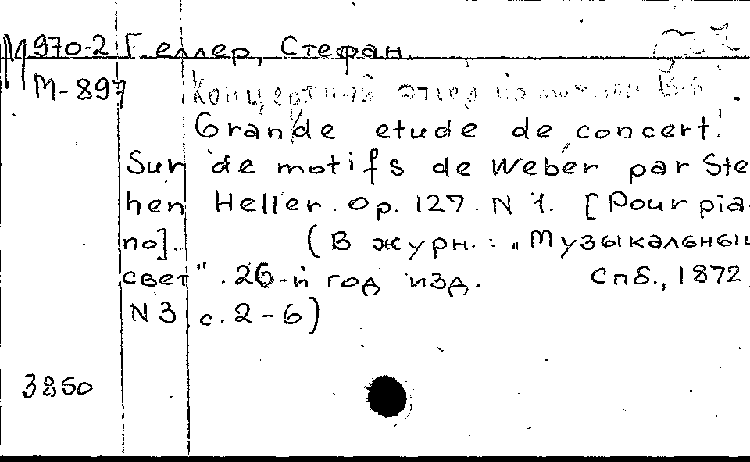 М970-2 Геллер, Стефан.
М-897 Концертный этюд на мотивы
Grande etude de concert.
Sur de motifs de Weber par Ste
hen Heller. Op. 127. N 1. [Pour pia-
no]. (В журн.: „Музыкальный
свет". 26-й год изд. Спб., 1872,
N3 с. 2-6)
3850